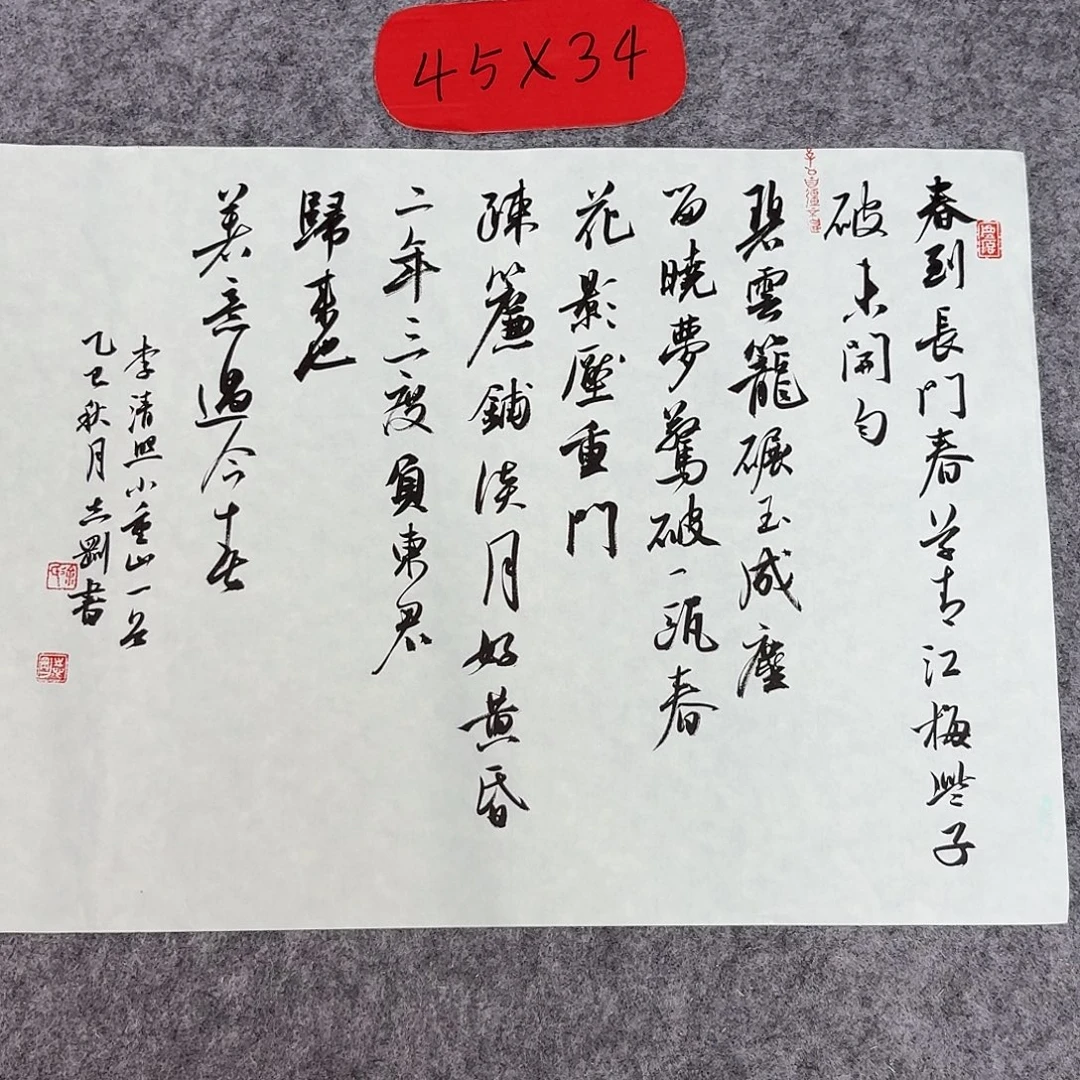 45X34
春到長門春草青江梅些子
破未開勻
碧雲籠碾玉成塵
留曉夢驚破一甌春
花影壓重門
疎簾鋪淡月好黃昏
二年三度負東君
歸來也
着意過今春
李清照小重山一
乙巳秋月志剛書